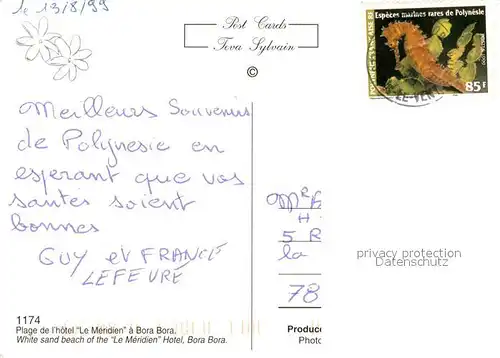 le 13/8/99
Post Cards
Teva Sylvain
©
Espèces marines rares de Polynésie
85F
Meilleurs Souvenirs
de Polynesie en
esperant que vos
santés soient
bonnes
GUY et FRANCE
LEFEURÉ
MR
H
5 R
la
78
privacy protection
Datenschutz
1174
Plage de l'hôtel "Le Méridien" à Bora Bora.
White sand beach of the "Le Méridien" Hotel, Bora Bora.
Produce
Photo